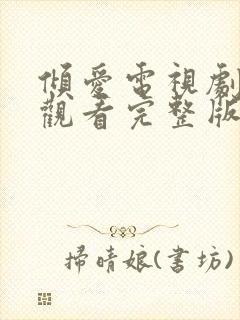 傾愛電視劇
觀看完整版
掃晴娘(書坊)